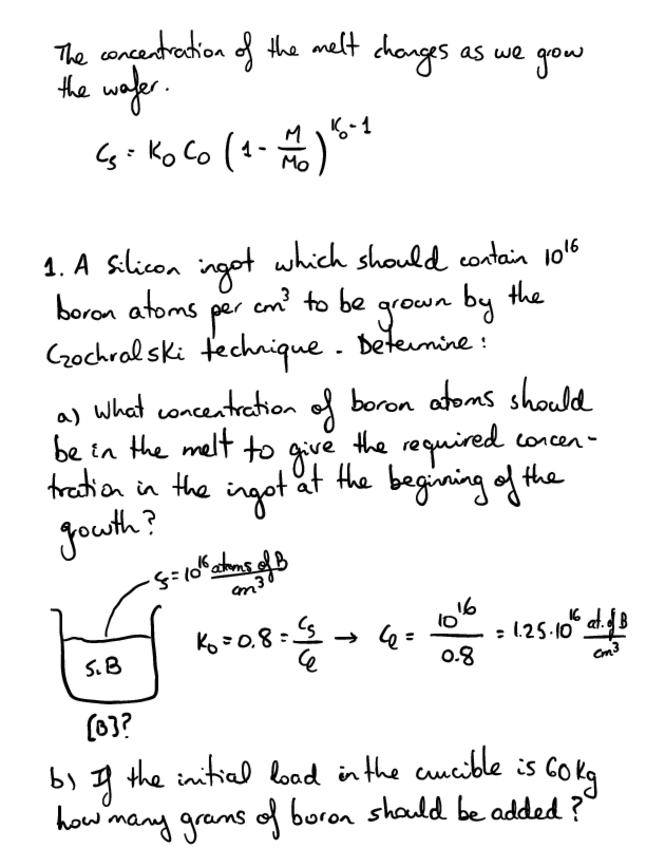 The concentration of the melt changes as we grow
the wafer.
Cs = Ko Co (1 - M/Mo)^Ko-1
1. A Silicon ingot which should contain 10^16
boron atoms per cm^3 to be grown by the
Czochralski technique. Determine:
a) What concentration of boron atoms should
be in the melt to give the required concen-
tration in the ingot at the beginning of the
growth?
Cs = 10^16 atoms of B/cm^3
Ko = 0.8 = Cs/Cl → Cl = 10^16/0.8 = 1.25·10^16 at. of B/cm^3
Si B
[B]?
b) If the initial load in the crucible is 60 Kg
how many grams of boron should be added?